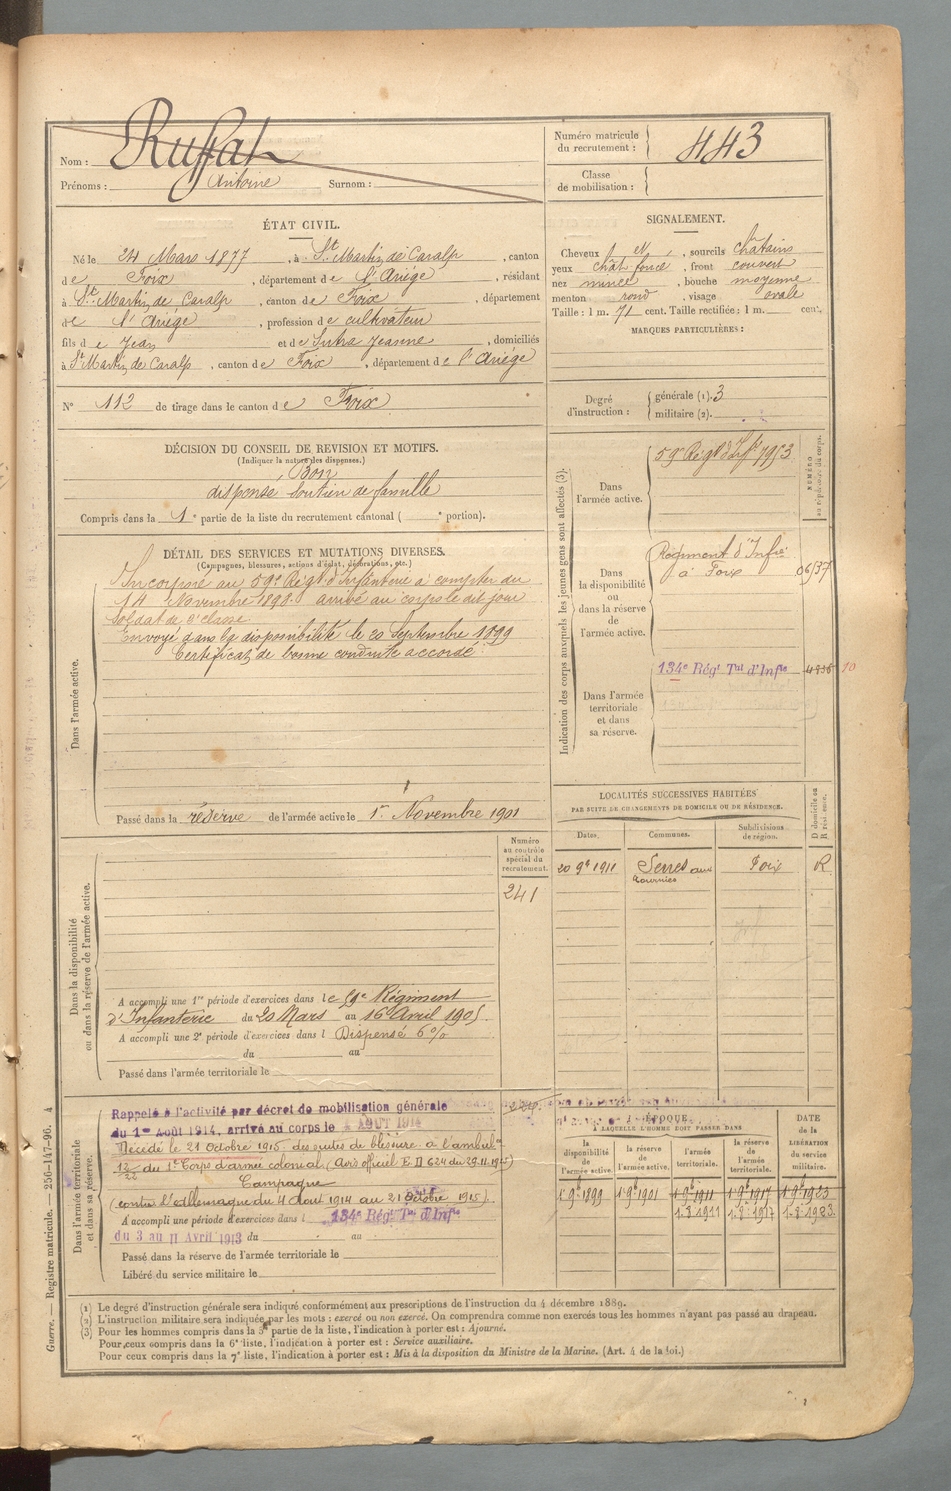 Nom : Ruffat
Prénoms : Antoine Surnom :
Numéro matricule du recrutement : 443
Classe de mobilisation :
ÉTAT CIVIL.
Né le 24 Mars 1877, à St Martin de Caralp, canton
de Foix, département de l'Ariége, résidant
à St Martin de Caralp, canton de Foix, département
de l'Ariége, profession de cultivateur
fils de Jean et de Sutra Jeanne, domiciliés
à St Martin de Caralp, canton de Foix, département de l'Ariége
N° 112 de tirage dans le canton de Foix
SIGNALEMENT.
Cheveux et, sourcils châtains
yeux chât foncé, front couvert
nez mince, bouche moyenne
menton rond, visage ovale
Taille : 1 m. 71 cent. Taille rectifiée : 1 m. cent.
MARQUES PARTICULIÈRES :
Degré d'instruction :
générale (1). 3
militaire (2).
DÉCISION DU CONSEIL DE REVISION ET MOTIFS.
(Indiquer la nature des dispenses.)
Bon
dispensé, soutien de famille
Compris dans la 1e partie de la liste du recrutement cantonal ( e portion).
DÉTAIL DES SERVICES ET MUTATIONS DIVERSES.
(Campagnes, blessures, actions d'éclat, décorations, etc.)
Dans l'armée active.
Incorporé au 59e Régt d'Infanterie à compter du
14 Novembre 1898. arrivé au corps le dit jour
soldat de 2e classe.
Envoyé dans la disponibilité le 20 Septembre 1899
Certificat de bonne conduite accordé.
Passé dans la réserve de l'armée active le 1er Novembre 1901
Indication des corps auxquels les jeunes gens sont affectés (3).
NUMÉRO au répertoire du corps.
Dans l'armée active.
59e Régt d'Infie 1953
Dans la disponibilité ou dans la réserve de l'armée active.
Régiment d'Infie
à Foix 06/37
Dans l'armée territoriale et dans sa réserve.
134e Régt Tal d'Infie 10
LOCALITÉS SUCCESSIVES HABITÉES
PAR SUITE DE CHANGEMENTS DE DOMICILE OU DE RÉSIDENCE.
Dates. Communes. Subdivisions de région. D domicile ou R résidence.
20 9e 1911 Serres Foix R
Dans la disponibilité ou dans la réserve de l'armée active.
Numéro au contrôle spécial du recrutement.
241
A accompli une 1re période d'exercices dans le 59e Régiment
d'Infanterie du 20 Mars au 16 Avril 1905.
A accompli une 2e période d'exercices dans l Dispensé 6%
du au
Passé dans l'armée territoriale le
Dans l'armée territoriale et dans sa réserve.
Rappelé à l'activité par décret de mobilisation générale
du 1er Août 1914, arrivé au corps le 4 AOUT 1914
Décédé le 21 Octobre 1915 des suites de blessure à l'ambulce
12/22 du 1er Corps d'armée colonial (Avis officiel E. II 624 du 29.11.1915)
Campagne
contre l'Allemagne du 4 Aout 1914 au 21 Octobre 1915).
A accompli une période d'exercices dans l 134e Régt Tal d'Infie
du 3 au 11 Avril 1913 du au
Passé dans la réserve de l'armée territoriale le
Libéré du service militaire le
ÉPOQUE
À LAQUELLE L'HOMME DOIT PASSER DANS
la disponibilité de l'armée active. la réserve de l'armée active. l'armée territoriale. la réserve de l'armée territoriale. DATE de la LIBÉRATION du service militaire.
1 9e 1899 1 9e 1901 1 9e 1911 1 9e 1917 1 9e 1923
1.8.1911 1.8.1917 1.8.1923
(1) Le degré d'instruction générale sera indiqué conformément aux prescriptions de l'instruction du 4 décembre 1889.
(2) L'instruction militaire sera indiquée par les mots : exercé ou non exercé. On comprendra comme non exercés tous les hommes n'ayant pas passé au drapeau.
(3) Pour les hommes compris dans la 5e partie de la liste, l'indication à porter est : Ajourné.
Pour ceux compris dans la 6e liste, l'indication à porter est : Service auxiliaire.
Pour ceux compris dans la 7e liste, l'indication à porter est : Mis à la disposition du Ministre de la Marine. (Art. 4 de la loi.)
Guerre. — Registre matricule. — 256-147-96. 4